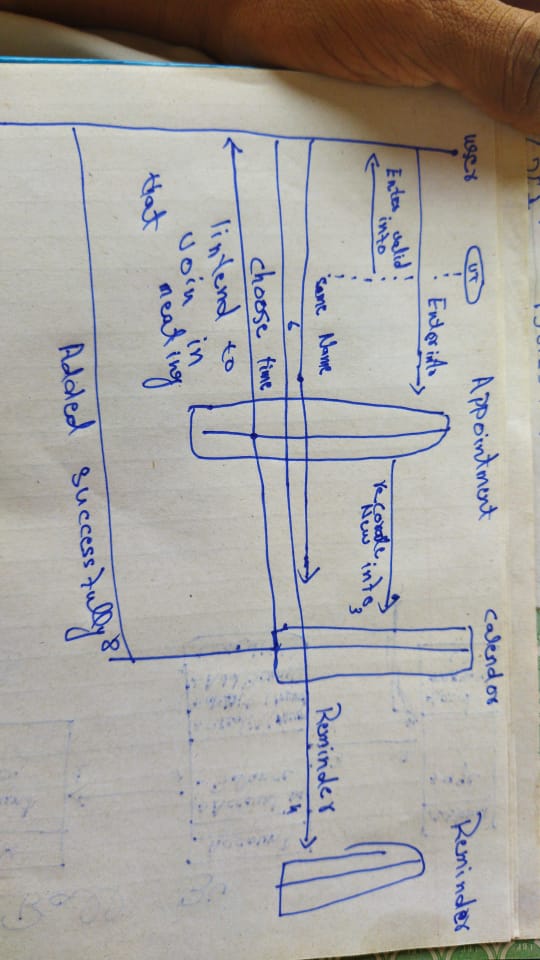 user
UI
Appointment
calendor
Reminder
Enter info
Enter valid
info
recorde
New info 3
same Name
Reminder 4
6
choose time
I intend to
Join in
meating
that
Added successfully 8